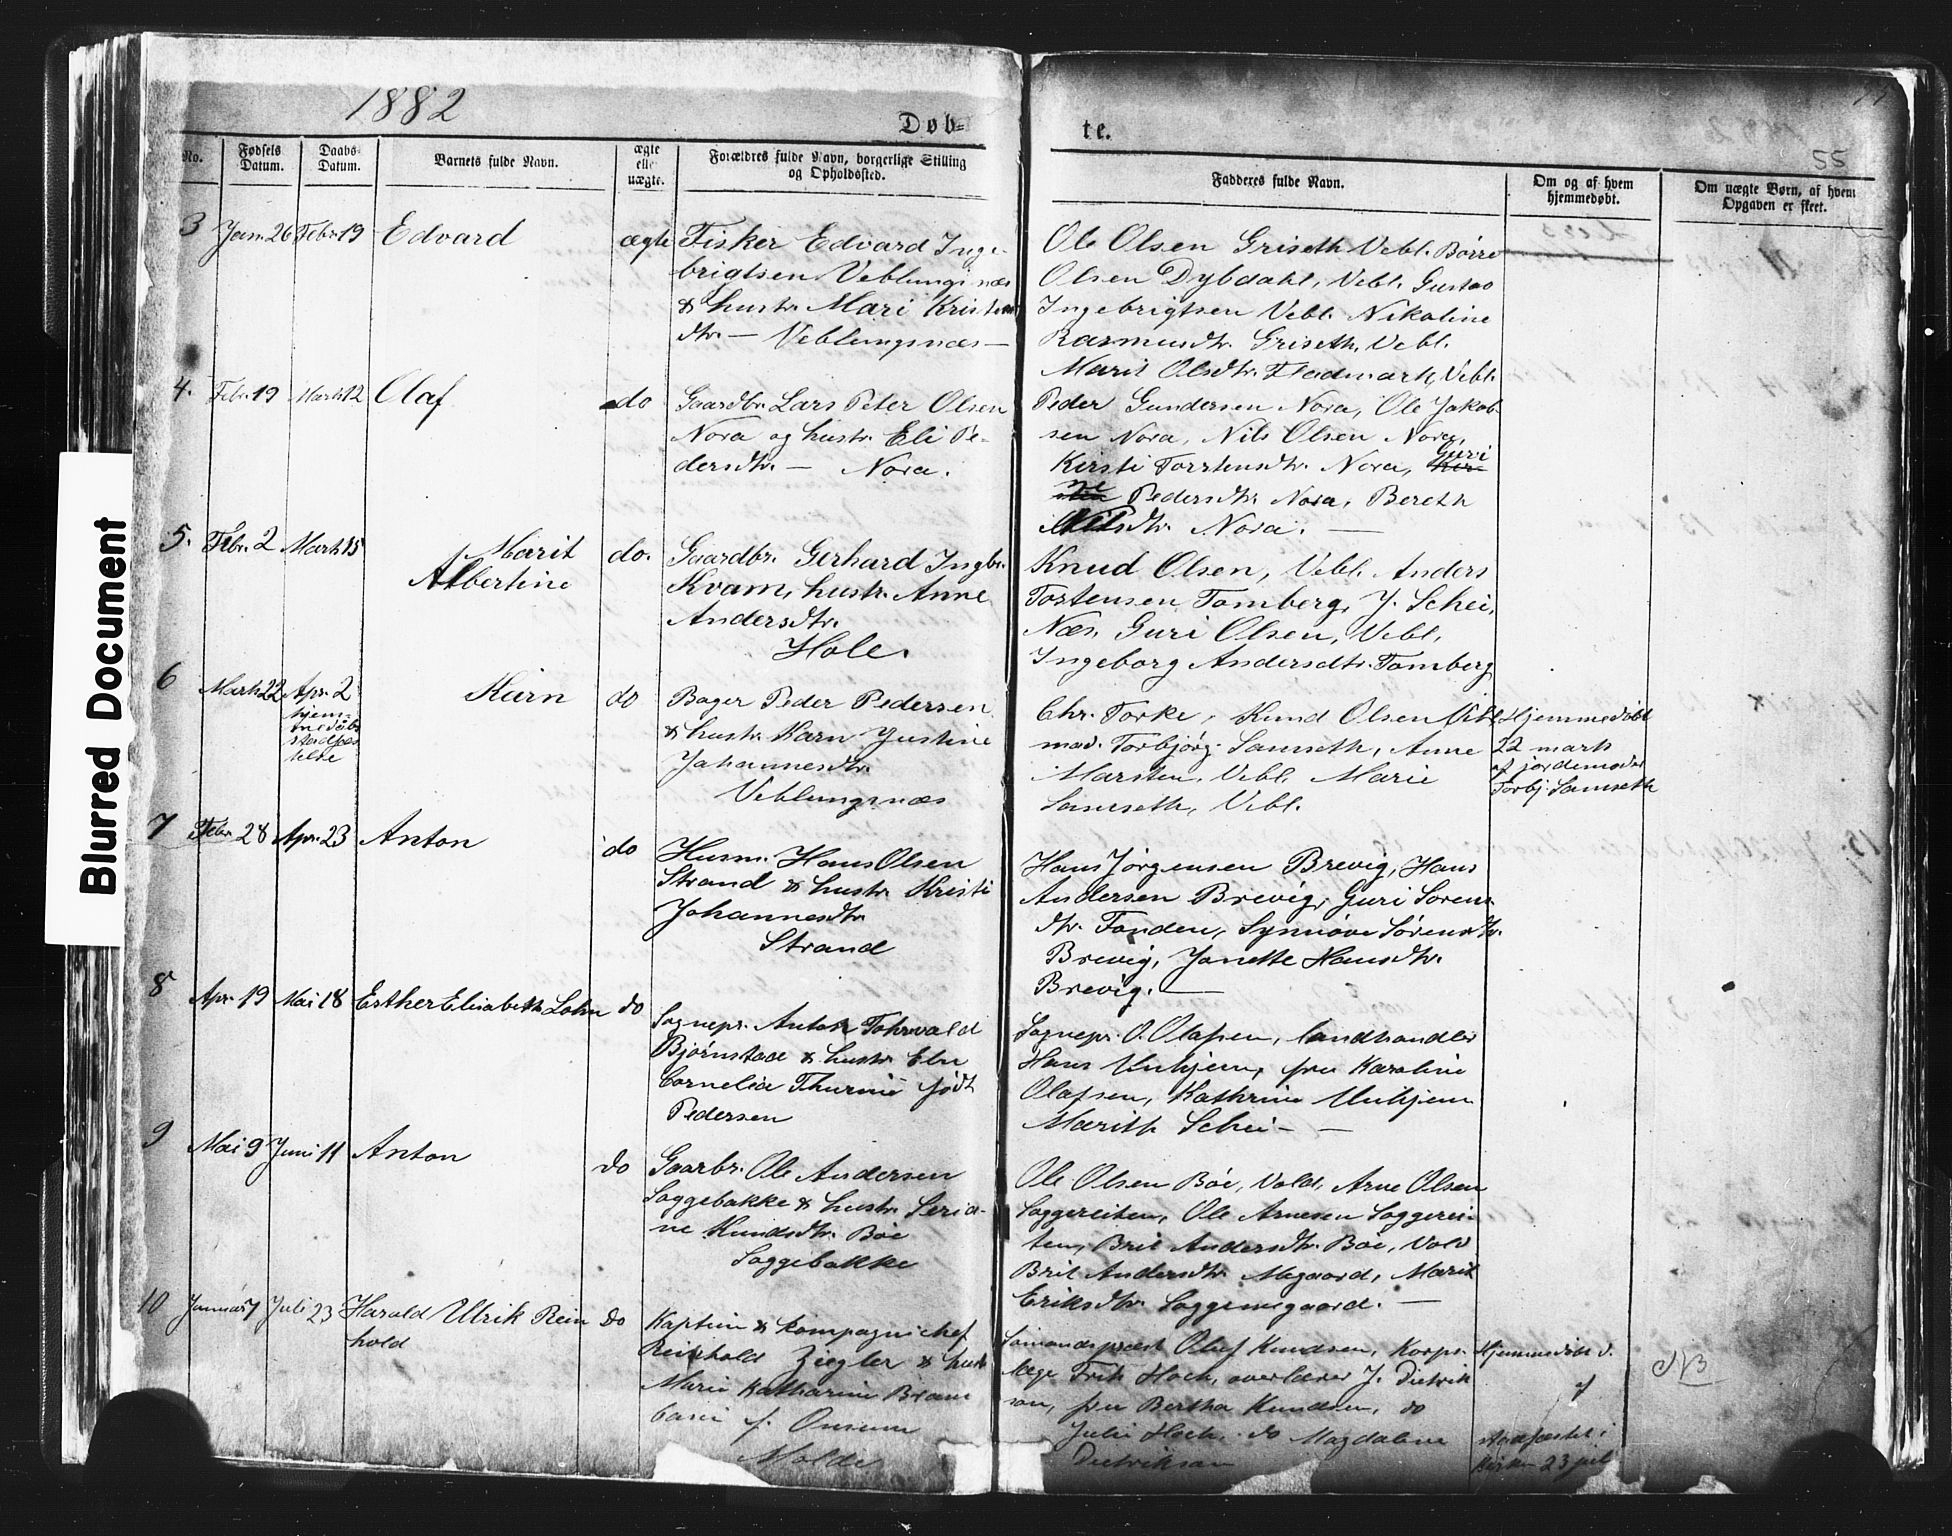 1882
Døb-
te.
55
No.
Fødsels Datum.
Daabs Datum.
Barnets fulde Navn.
ægte eller uægte.
Forældres fulde Navn, borgerlige Stilling
og Opholdssted.
Fadderes fulde Navn.
Om og af hvem
hjemmedøbt.
Om uægte Børn, af hvem
Opgaven er skeet.
3 Jan. 26 Febr 19 Edvard ægte Fisker Edvard Inge-
brigtsen Veblungsnæs
& hustr. Mari Kristens
dtr. — Veblungsnæs —
Ole Olsen Griseth Vebl. Børre
Olsen Dybdahl, Vebl. Gustav
Ingebrigtsen Vebl. Nikoline
Rasmusdtr. Griseth, Vebl.
Marit Olsdtr. Fladmark, Vebl.
4. Febr. 19 Marts 12 Olaf do Gaardbr. Lars Peter Olsen
Nora og hustr. Eli Pe-
dersdtr. — Nora.
Peder Gundersen Nora, Ole Jakob-
sen Nora, Nils Olsen Nora,
Kirsti Torstensdtr. Nora, Guri
Pedersdtr. Nora, Bereth
Nilsdtr. Nora. —
5. Febr. 2 Marts 15 Marit
Albertine
do. Gaardbr. Gerhard Ingbr.
Kvam, hustr. Anne
Andersdtr.
Hole.
Knud Olsen, Vebl. Anders
Torstensen Tomberg, J. Schei,
Næs, Guri Olsen, Vebl.
Ingeborg Andersdtr. Tomberg
6 Marts 22 Apr. 2
hjem-
medøbt
stadfæ-
Karn do Bager Peder Pedersen
& hustr. Karn Justine
Johannesdtr.
Veblungsnæs
Chr. Torke, Knud Olsen Vebl
mad. Torbjørg Samseth, Anne
Marsten, Vebl. Marie
Samseth, Vebl.
Hjemmedøbt
22 marts
af jordemoder
Torbj. Samseth
7 Febr. 28 Apr. 23 Anton do Husm. Hans Olsen
Strand & hustr. Kristi
Johannesdtr.
Strand
Hans Jørgensen Brevig, Hans
Andersen Brevig, Guri Sørens-
dtr. Fonden, Synnøve Sørensdtr.
Brevig, Janette Hansdtr.
Brevig. —
8 Apr. 19 Mai 18 Esther Elisabeth Lohn do
Sognepr. Anton Tohrvald
Bjørnstad & hustr. Elen
Cornelia Thurine født
Pedersen
Sognepr. O. Olafsen, landhandler
Hans Unhjem, fru Karoline
Olafsen, Kathrine Unhjem
Marith Schei — —
9 Mai 9 Juni 11 Anton do Gaarbr. Ole Andersen
Soggebakke & hustr. Seria-
ne Knudsdtr. Bøe
Soggebakke
Ole Olsen Bøe, Vold, Arne Olsen
Soggereiten, Ole Arnesen Soggerei-
ten, Brit Andersdtr. Bøe, Vold
Brit Andersdtr. Mogaard, Marit
Eriksdtr. Soggemogaard. —
10 Januar 7 Juli 23 Harald Ulrik Rein
hold
do Kaptein & kompagnichef
Reinhold Ziegler & hustr
Marie Katharine
f. Onsum
Molde
Sømandspræst Oluf Knudsen, Korps-
læge Frits Hoch, overlærer J. Dietrik
son, fru Bertha Knudsen, do
Julie Hoch, do Magdalene
Dietrikson
Hjemmedøbt d.
Stadfæstet i
kirken 23 juli
NB
Blurred Document